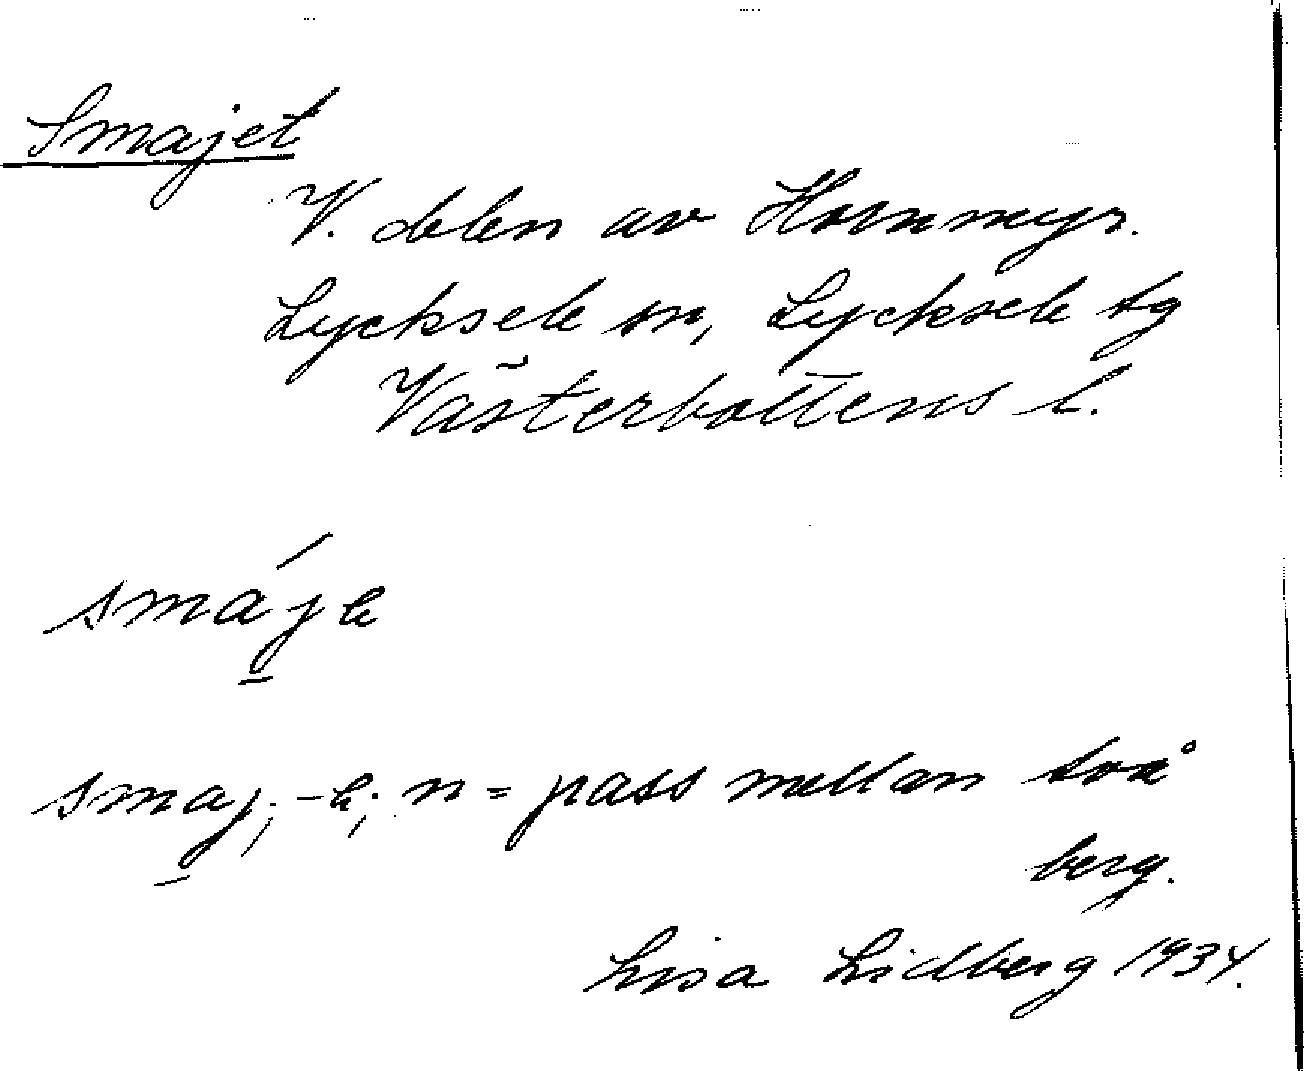 Smajet
V. delen av Hornmyr.
Lycksele sn, Lycksele tg
Västerbottens l.
smáje
smaj, -e, n = pass mellan två
berg.
Lisa Lidberg 1934.